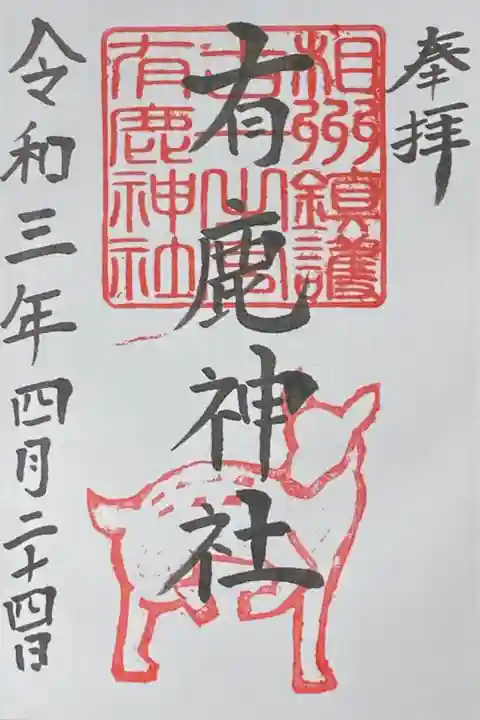 奉拝
有鹿神社
相州鎮護
有鹿神社
令和三年四月二十四日